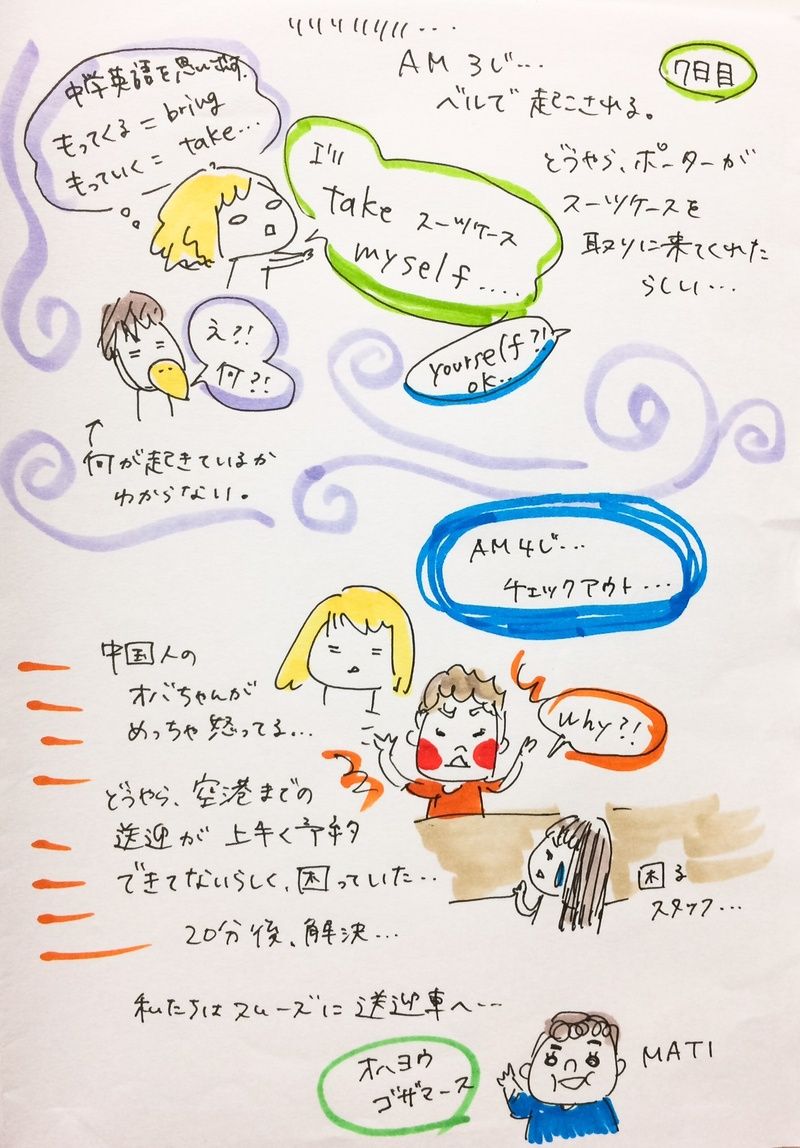 リリリリリリリ...
AM 3じ...
ベルで起こされる。
7日目
どうやら、ポーターが
スーツケースを
取りに来てくれた
らしい...
中学英語を思い出す.
もってくる = bring
もっていく = take...
I'll
take スーツケース
myself....
yourself?!
ok..
え?!
何?!
↑
何が起きているか
わからない。
AM 4じ...
チェックアウト...
中国人の
オバちゃんが
めっちゃ怒ってる...
why?!
どうやら、空港までの
送迎が上手く予約
できてないらしく、困っていた...
困る
スタッフ...
20分後、解決...
私たちはスムーズに送迎車へ...
オハヨウ
ゴザマース
MATI